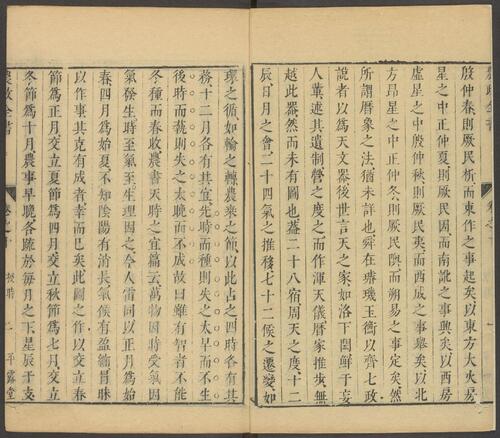 殷仲春則厥民析而東作之事起矣以東方大火房
星之中正仲夏則厥民因而南訛之事興矣以西房
虛星之中殷仲秋則厥民夷而西成之事舉矣以北
方昴星之中正仲冬則厥民隩而朔易之事定矣然
所謂曆象之法猶未詳也舜在璿璣玉衡以齊七政
說者以爲天文器後世言天之家如洛下閎鮮于妄
人輩述其遺制營之度之而作渾天儀曆家推步無
越此器然而未有圖也蓋二十八宿周天之度十二
辰日月之會二十四氣之推移七十二候之遷變如
環之循如輪之轉農桑之節以此占之四時各有其
務十二月各有其宜先時而種則失之太早而不生
後時而蓺則失之太晚而不成故曰雖有智者不能
冬種而春收農書天時之宜篇云萬物因時受氣因
氣發生時至氣至生理因之今人雷同以正月爲始
春四月爲始夏不知陰陽有消長氣候有盈縮冒昧
以作事其克有成者幸而已矣此圖之作以交立春
節爲正月交立夏節爲四月交立秋節爲七月交立
冬節爲十月農事早晚各疏於每月之下星辰干支
農政全書 卷之十 授時 二 平露堂